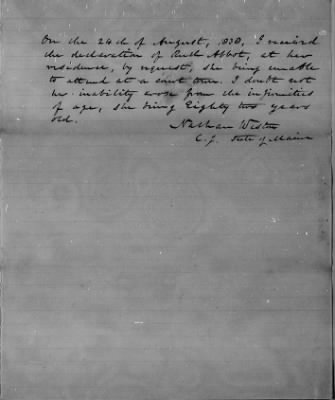 On the 24th of August, 1838, I received
the declaration of Ruth Abbot, at her
residence, by request, she being unable
to attend at a court term. I doubt not
her inability arose from the infirmities
of age, she being Eighty two years
old.
Nathan Weston
C. J. State of Maine